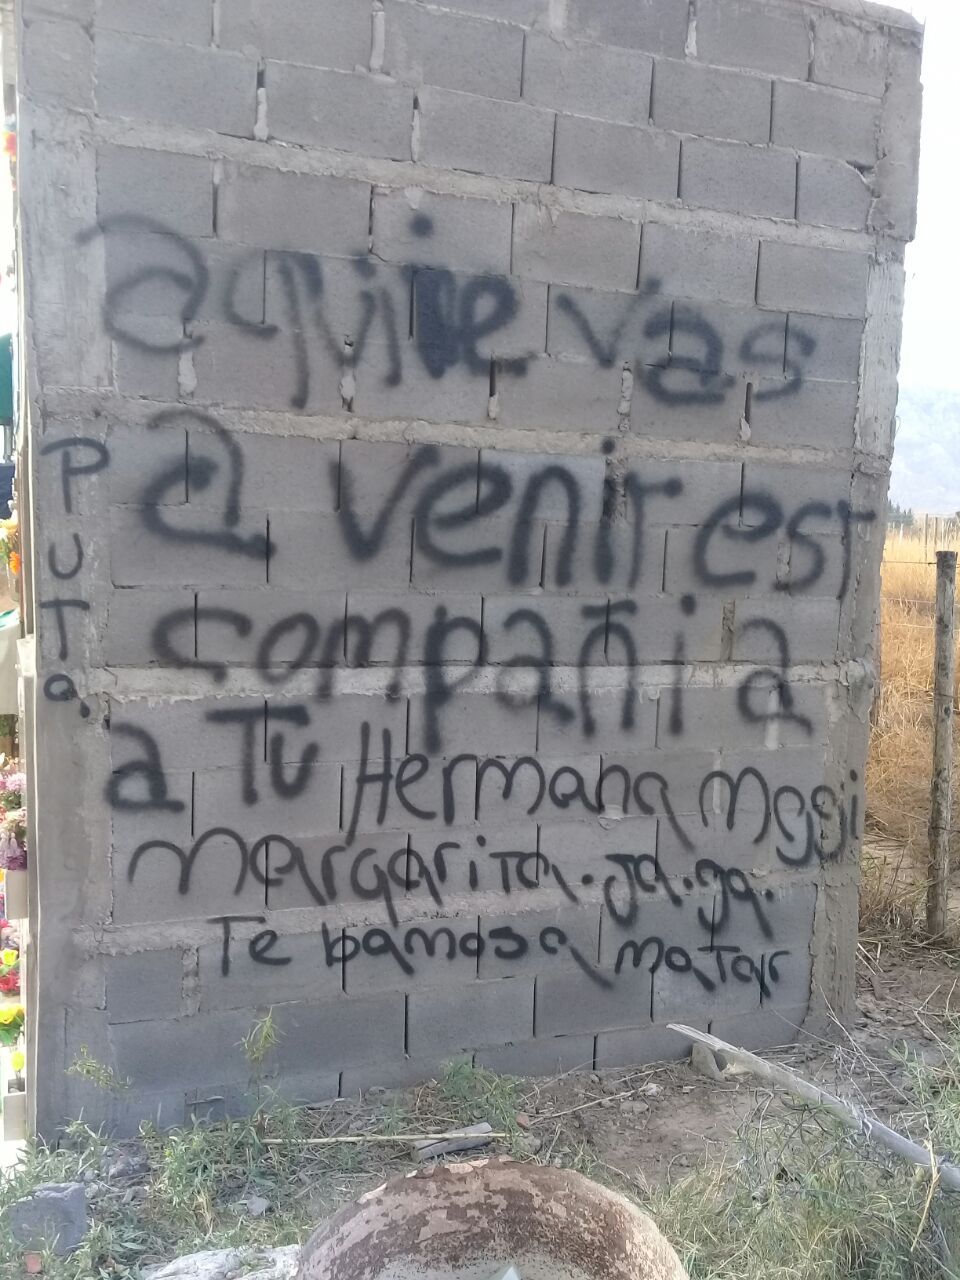 aquie vas
a venir est
compañia
a Tu Hermana Meggi
Margarita. Ja. ja.
Te bamos a matar
PUTa.